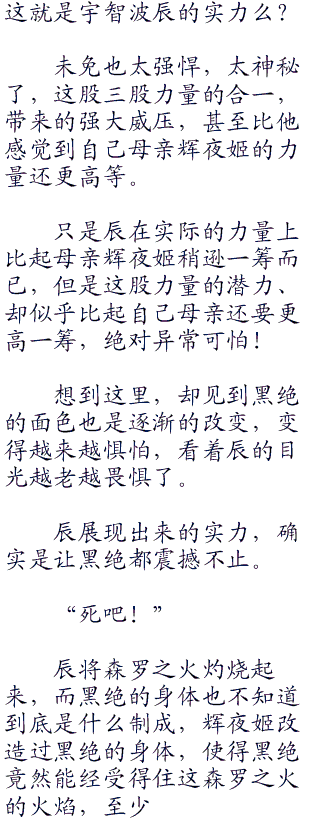 这就是宇智波辰的实力么？
未免也太强悍，太神秘
了，这股三股力量的合一，
带来的强大威压，甚至比他
感觉到自己母亲辉夜姬的力
量还更高等。
只是辰在实际的力量上
比起母亲辉夜姬稍逊一筹而
已，但是这股力量的潜力、
却似乎比起自己母亲还要更
高一筹，绝对异常可怕！
想到这里，却见到黑绝
的面色也是逐渐的改变，变
得越来越惧怕，看着辰的目
光越老越畏惧了。
辰展现出来的实力，确
实是让黑绝都震撼不止。
“死吧！”
辰将森罗之火灼烧起
来，而黑绝的身体也不知道
到底是什么制成，辉夜姬改
造过黑绝的身体，使得黑绝
竟然能经受得住这森罗之火
的火焰，至少